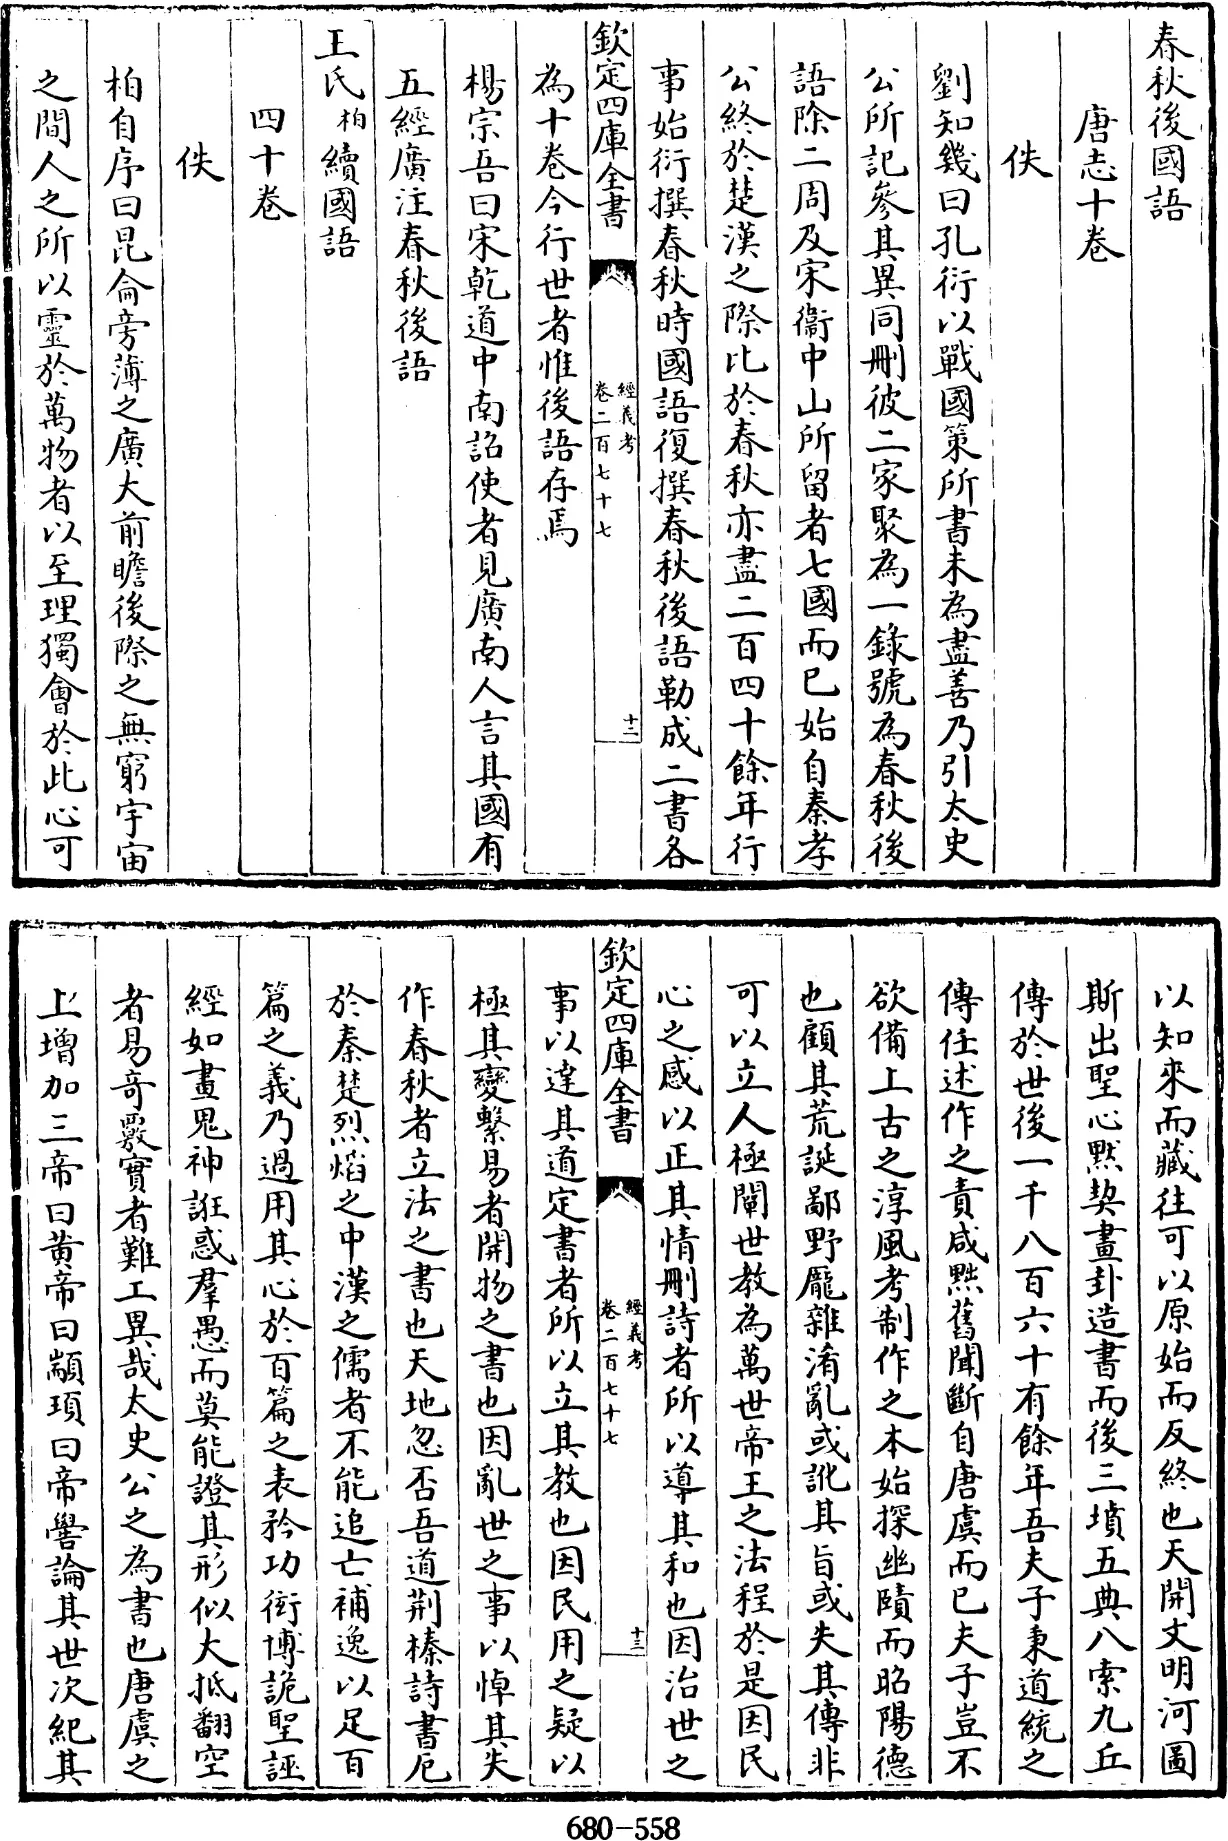 春秋後國語
唐志十卷
佚
劉知幾曰孔衍以戰國策所書未為盡善乃引太史
公所記參其異同刪彼二家聚為一錄號為春秋後
語除二周及宋衞中山所留者七國而已始自秦孝
公終於楚漢之際比於春秋亦盡二百四十餘年行
事始衍撰春秋時國語復撰春秋後語勒成二書各
欽定四庫全書
經義考
卷二百七十七
十二
為十卷今行世者惟後語存焉
楊宗吾曰宋乾道中南詔使者見廣南人言其國有
五經廣注春秋後語
王氏柏續國語
四十卷
佚
柏自序曰昆侖旁薄之廣大前瞻後際之無窮宇宙
之間人之所以靈於萬物者以至理獨會於此心可
以知來而藏往可以原始而反終也天開文明河圖
斯出聖心默契畫卦造書而後三墳五典八索九丘
傳於世後一千八百六十有餘年吾夫子秉道統之
傳任述作之責咸黜舊聞斷自唐虞而已夫子豈不
欲備上古之淳風考制作之本始探幽賾而昭陽德
也顧其荒誕鄙野厖雜淆亂或訛其旨或失其傳非
可以立人極闡世教為萬世帝王之法程於是因民
心之感以正其情刪詩者所以導其和也因治世之
欽定四庫全書
經義考
卷二百七十七
十三
事以達其道定書者所以立其教也因民用之疑以
極其變繫易者開物之書也因亂世之事以悼其失
作春秋者立法之書也天地忽否吾道荆榛詩書厄
於秦楚烈焰之中漢之儒者不能追亡補逸以足百
篇之義乃過用其心於百篇之表矜功衒博詭聖誣
經如畫鬼神誑惑羣愚而莫能證其形似大抵翻空
者易竒覈實者難工異哉太史公之為書也唐虞之
上增加三帝曰黄帝曰顓頊曰帝嚳論其世次紀其
680-558